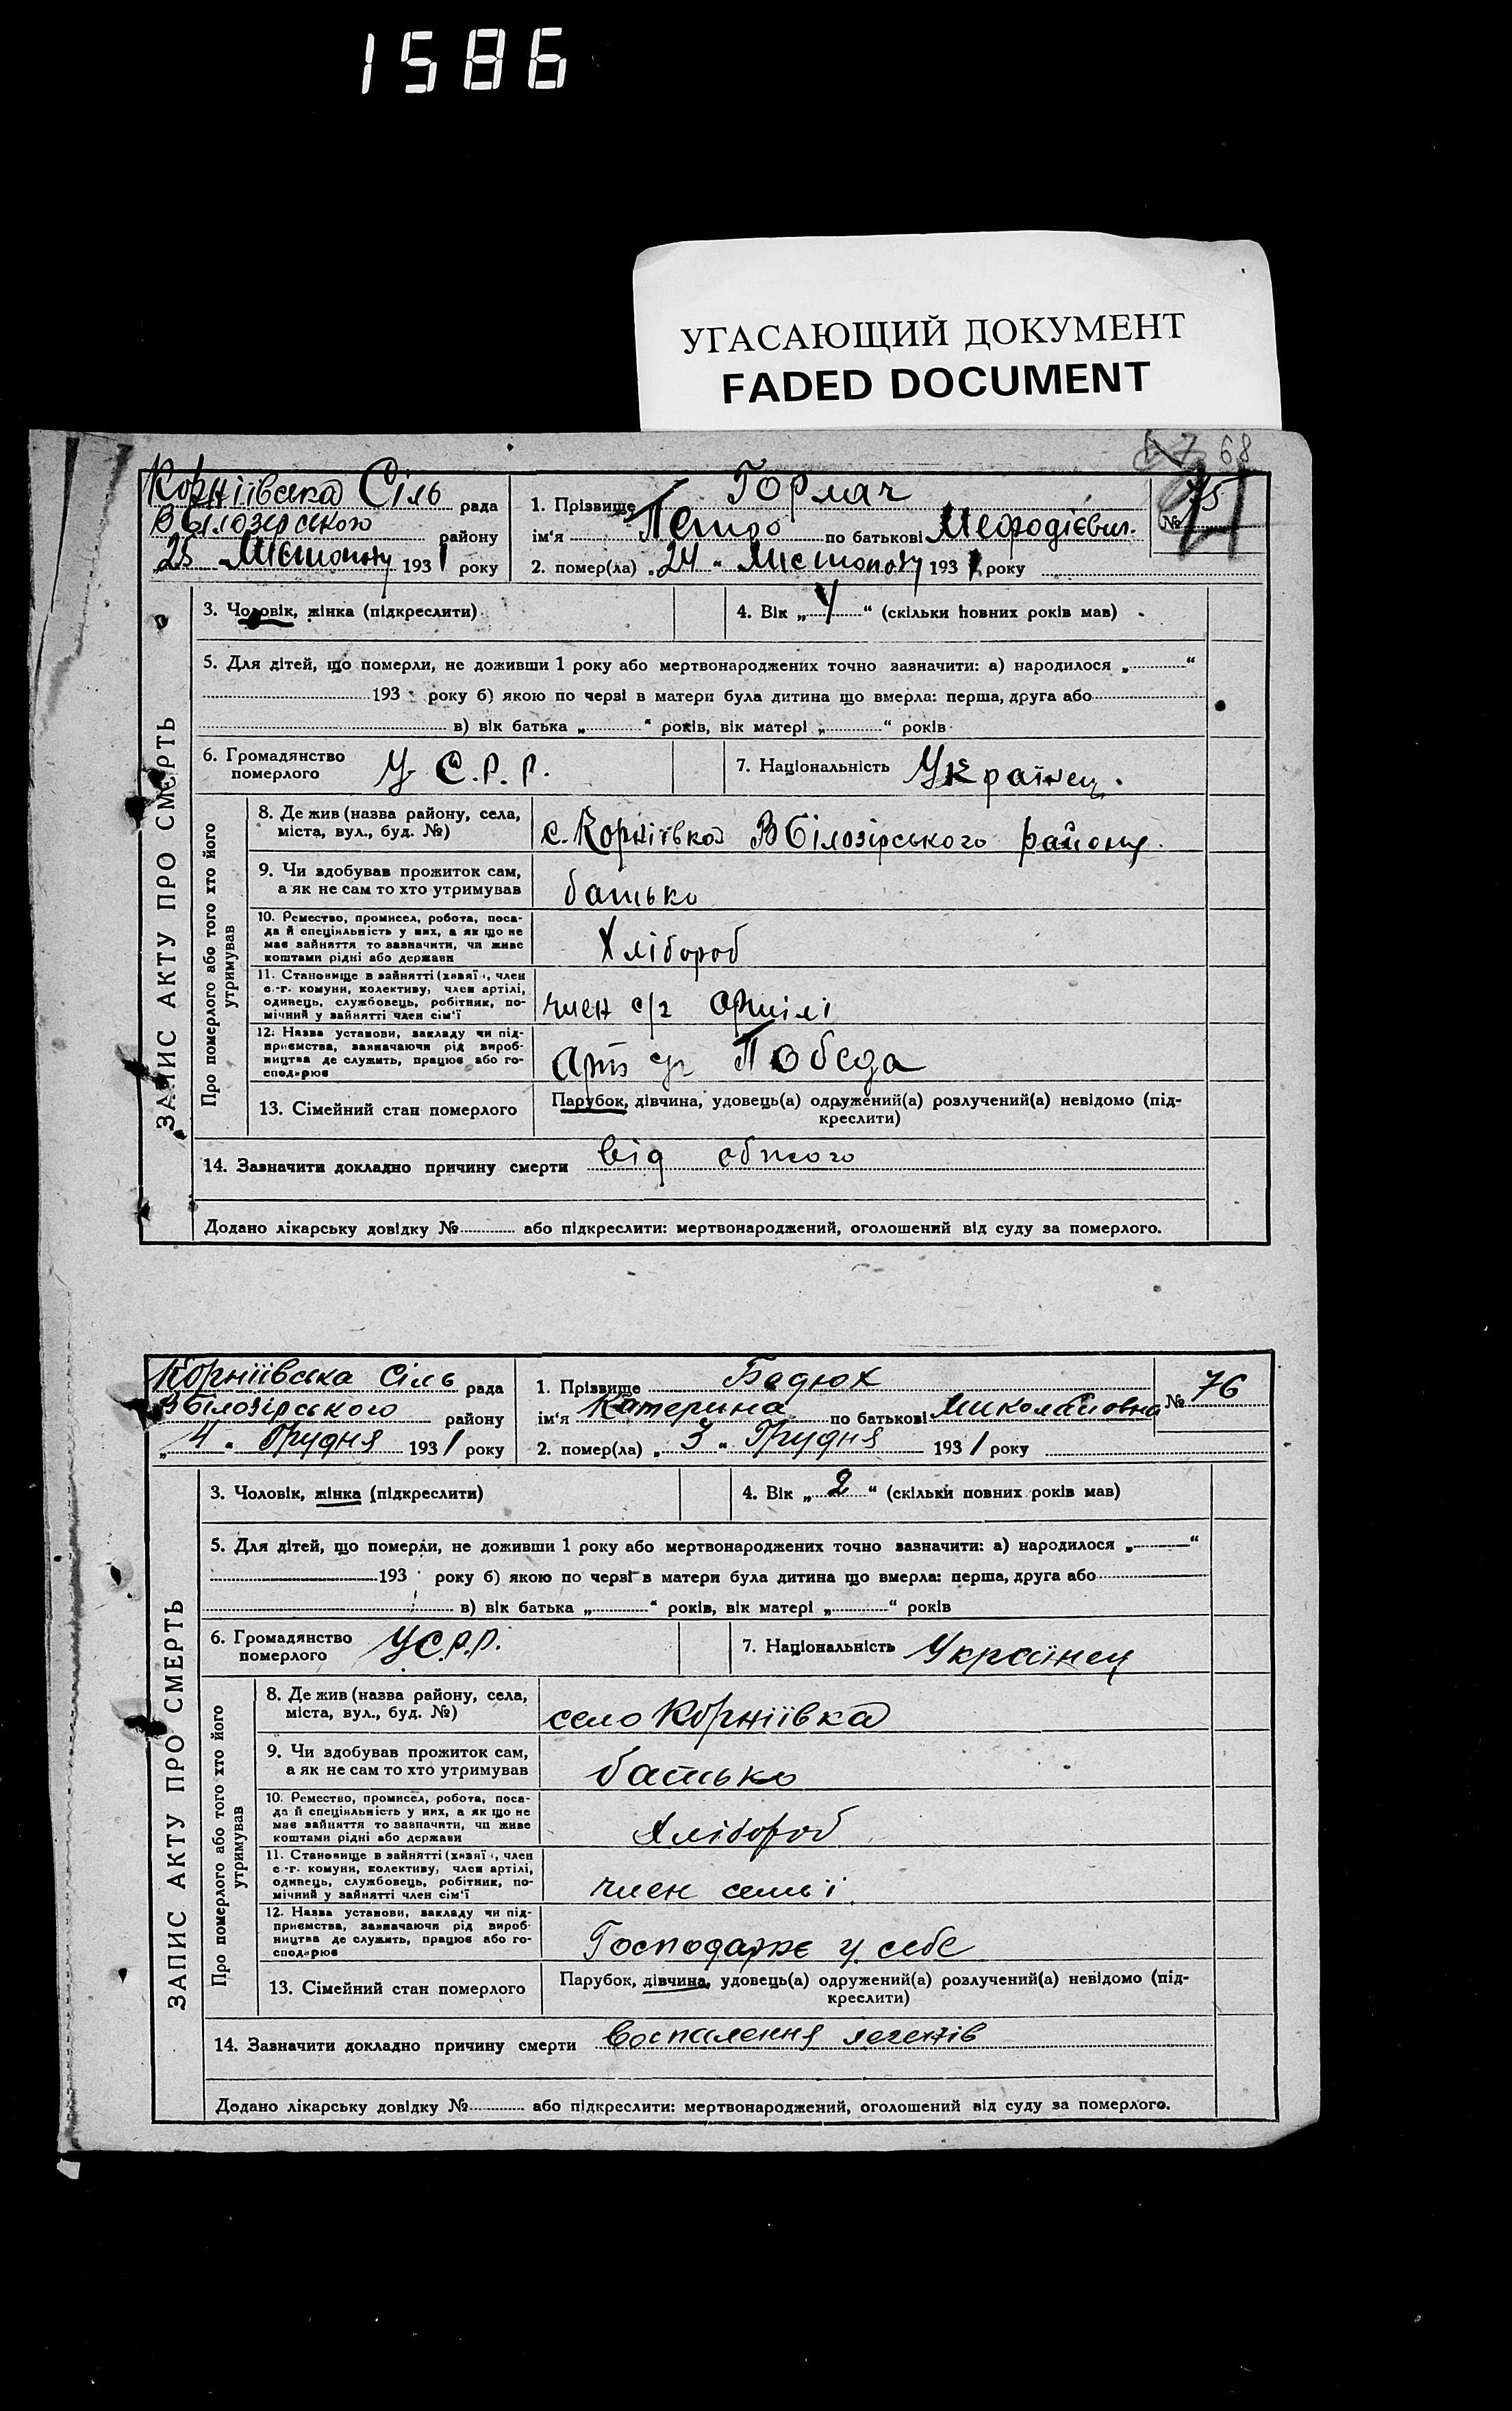 1586
УГАСАЮЩИЙ ДОКУМЕНТ
FADED DOCUMENT
68
Корніївська Сіль рада
В Білозерського району
25 Листопаду 1931 року
1. Прізвище Гормач
ім‘я Петро по батькові Мефодієвич.
2. помер(ла) „24 “ Листопаду 1931 року
№ 75
ЗАПИС АКТУ ПРО СМЕРТЬ
3. Чоловік, жінка (підкреслити)
4. Вік „ 4 “ (скільки повних років мав)
5. Для дітей, що померли, не доживши 1 року або мертвонароджених точно зазначити: а) народилося „ “
193 року б) якою по черзі в матери була дитина що вмерла: перша, друга або
в) вік батька „ “ років, вік матері „ “ років
6. Громадянство
померлого
У С.Р.Р.
7. Національність Українец.
Про померлого або того хто його
утримував
8. Де жив (назва району, села,
міста, вул., буд. №)
с. Корніївка В Білозірського району.
9. Чи здобував прожиток сам,
а як не сам то хто утримував
батько
10. Ремество, промисел, робота, поса-
да й спеціяльність у них, а як що не
має зайняття то зазначити, чи живе
коштами рідні або держави
Хлібороб
11. Становище в зайнятті (хазяї , член
с.-г. комуни, колективу, член артілі,
одинець, службовець, робітник, по-
мічний у зайнятті член сім‘ї
член с/г артілі
12. Назва установи, закладу чи під-
приємства, зазначаючи рід вироб-
ництва де служить, працює або го-
сподарює
Победа
13. Сімейний стан померлого
Парубок, дівчина, удовець(а) одружений(а) розлучений(а) невідомо (під-
креслити)
14. Зазначити докладно причину смерти від
Додано лікарську довідку № або підкреслити: мертвонароджений, оголошений від суду за померлого.
Корніївська Сіль рада
В Білозірського району
„ 4 “ Грудня 1931 року
1. Прізвище Бадюх
ім‘я Катерина по батькові Миколаіовна
2. помер(ла) „ 3 “ Грудня 1931 року
№ 76
ЗАПИС АКТУ ПРО СМЕРТЬ
3. Чоловік, жінка (підкреслити)
4. Вік „ 2 “ (скільки повних років мав)
5. Для дітей, що померли, не доживши 1 року або мертвонароджених точно зазначити: а) народилося „ “
193 року б) якою по черзі в матери була дитина що вмерла: перша, друга або
в) вік батька „ “ років, вік матері „ “ років
6. Громадянство
померлого
УС.Р.Р.
7. Національність Українец
Про померлого або того хто його
утримував
8. Де жив (назва району, села,
міста, вул., буд. №)
село Корніївка
9. Чи здобував прожиток сам,
а як не сам то хто утримував
батько
10. Ремество, промисел, робота, поса-
да й спеціяльність у них, а як що не
має зайняття то зазначити, чи живе
коштами рідні або держави
Хлібороб
11. Становище в зайнятті (хазяї , член
с.-г. комуни, колективу, член артілі,
одинець, службовець, робітник, по-
мічний у зайнятті член сім‘ї
член семьї
12. Назва установи, закладу чи під-
приємства, зазначаючи рід вироб-
ництва де служить, працює або го-
сподарює
Господарює у себе
13. Сімейний стан померлого
Парубок, дівчина, удовець(а) одружений(а) розлучений(а) невідомо (під-
креслити)
14. Зазначити докладно причину смерти воспалення легенів
Додано лікарську довідку № або підкреслити: мертвонароджений, оголошений від суду за померлого.